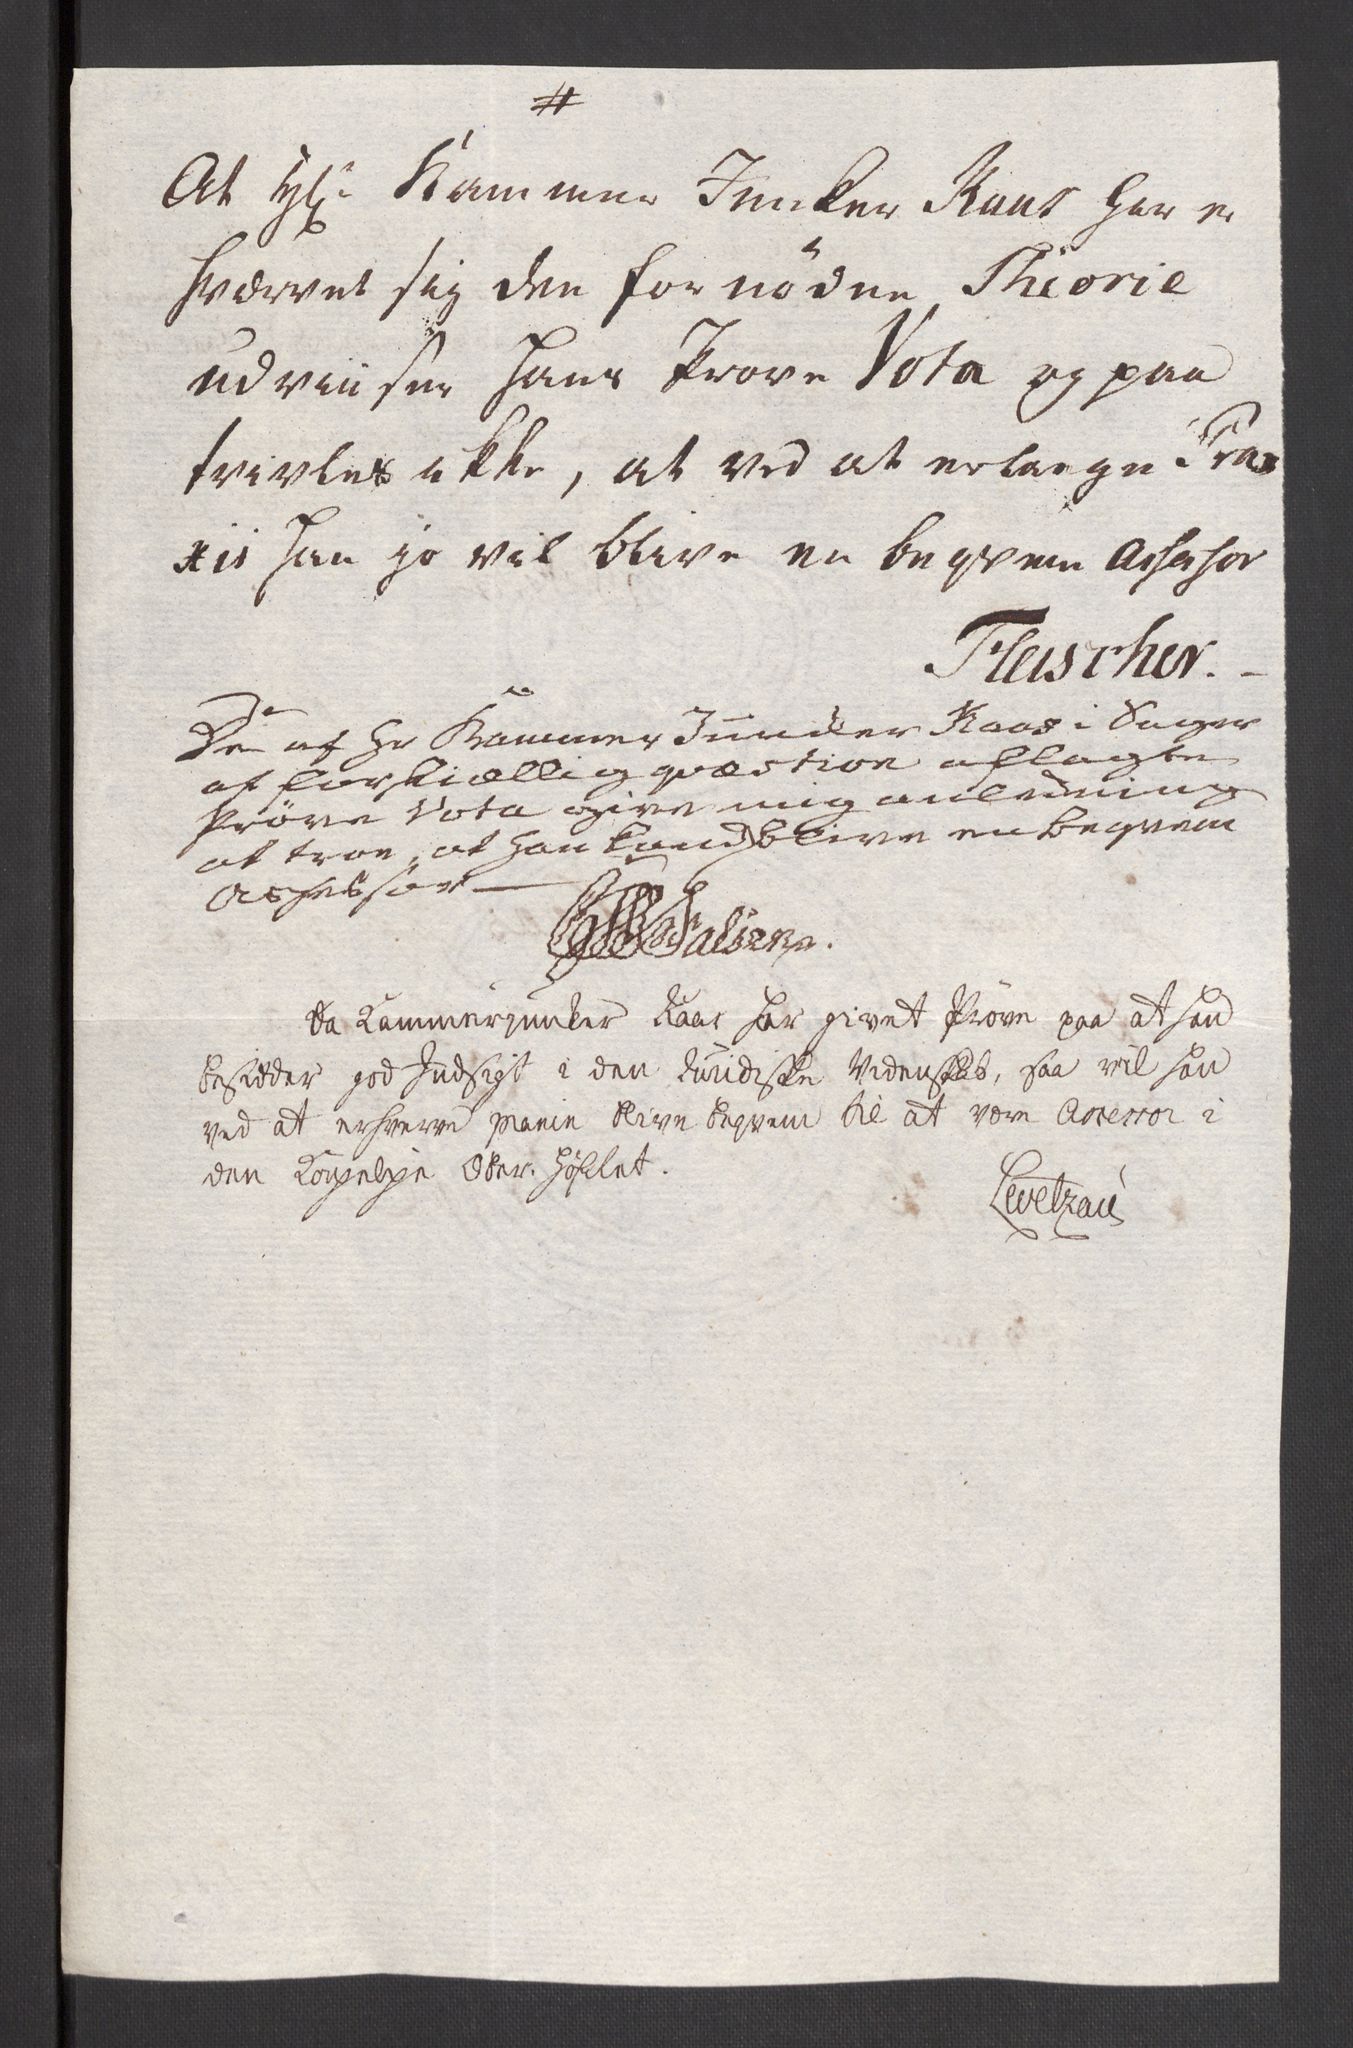 #
At Hr Kammer Juncker Kaas har er
hvervet sig den fornödne Theorie
udviiser hans Prøve Vota og paa
tvivles ikke, at ved at erlange Pra
xis han jo vil blive en beqvem Assessor
Fleischer.
De af Hr Kammer Juncker Kaas i Sager
af forskiællig qvæstion aflagte
Prøve Vota give mig anledning
at troe, at han kand blive en beqvem
Assessor
Falsen.
Da Kammerjunker Kaas har givet Prøve paa at han
besidder god Indsigt i den Juridiske Videnskab, saa vil han
ved at erhverve praxin blive beqvem til at være Assessor i
den Kongelige Ober-Hofret.
Levetzau